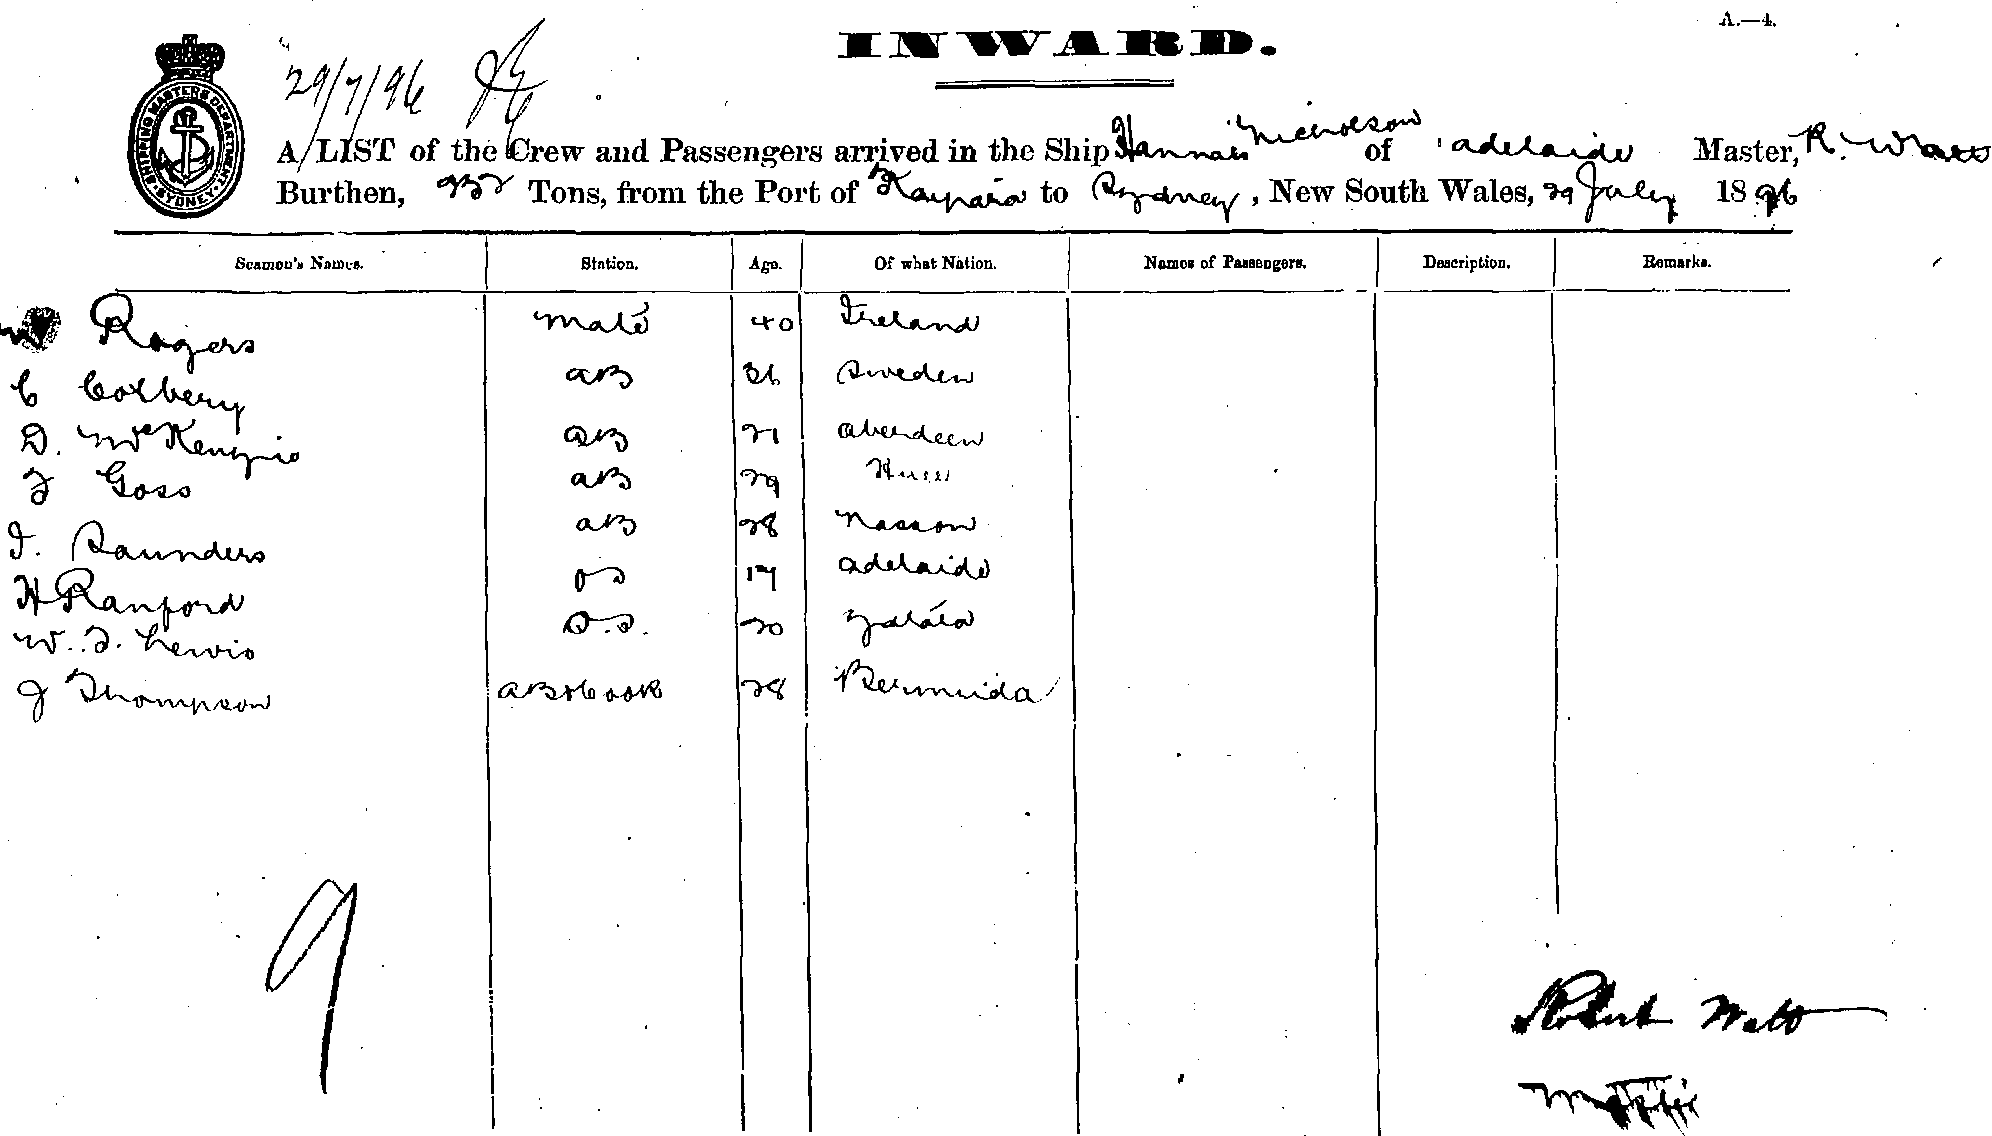 A.—4.
INWARD.
29/7/96
SHIPPING MASTERS DEPARTMENT SYDNEY
A LIST of the Crew and Passengers arrived in the Ship Hannah Nicholson of Adelaide Master, R. Watt
Burthen, Tons, from the Port of Kaipara to Sydney, New South Wales, 29 July 1896
Seamen's Names. Station. Age. Of what Nation. Names of Passengers. Description. Remarks.
Rogers Mate 40 Ireland
C Colbery AB 36 Sweden
D. McKenzie AB 21 Aberdeen
F Goss AB 29
F. Saunders AB 28 Nassau
H Ranford OS 17 Adelaide
W. F. Lewis O.S. 20
J Thompson AB & Cook 28 Bermuda
9
Robert Watt